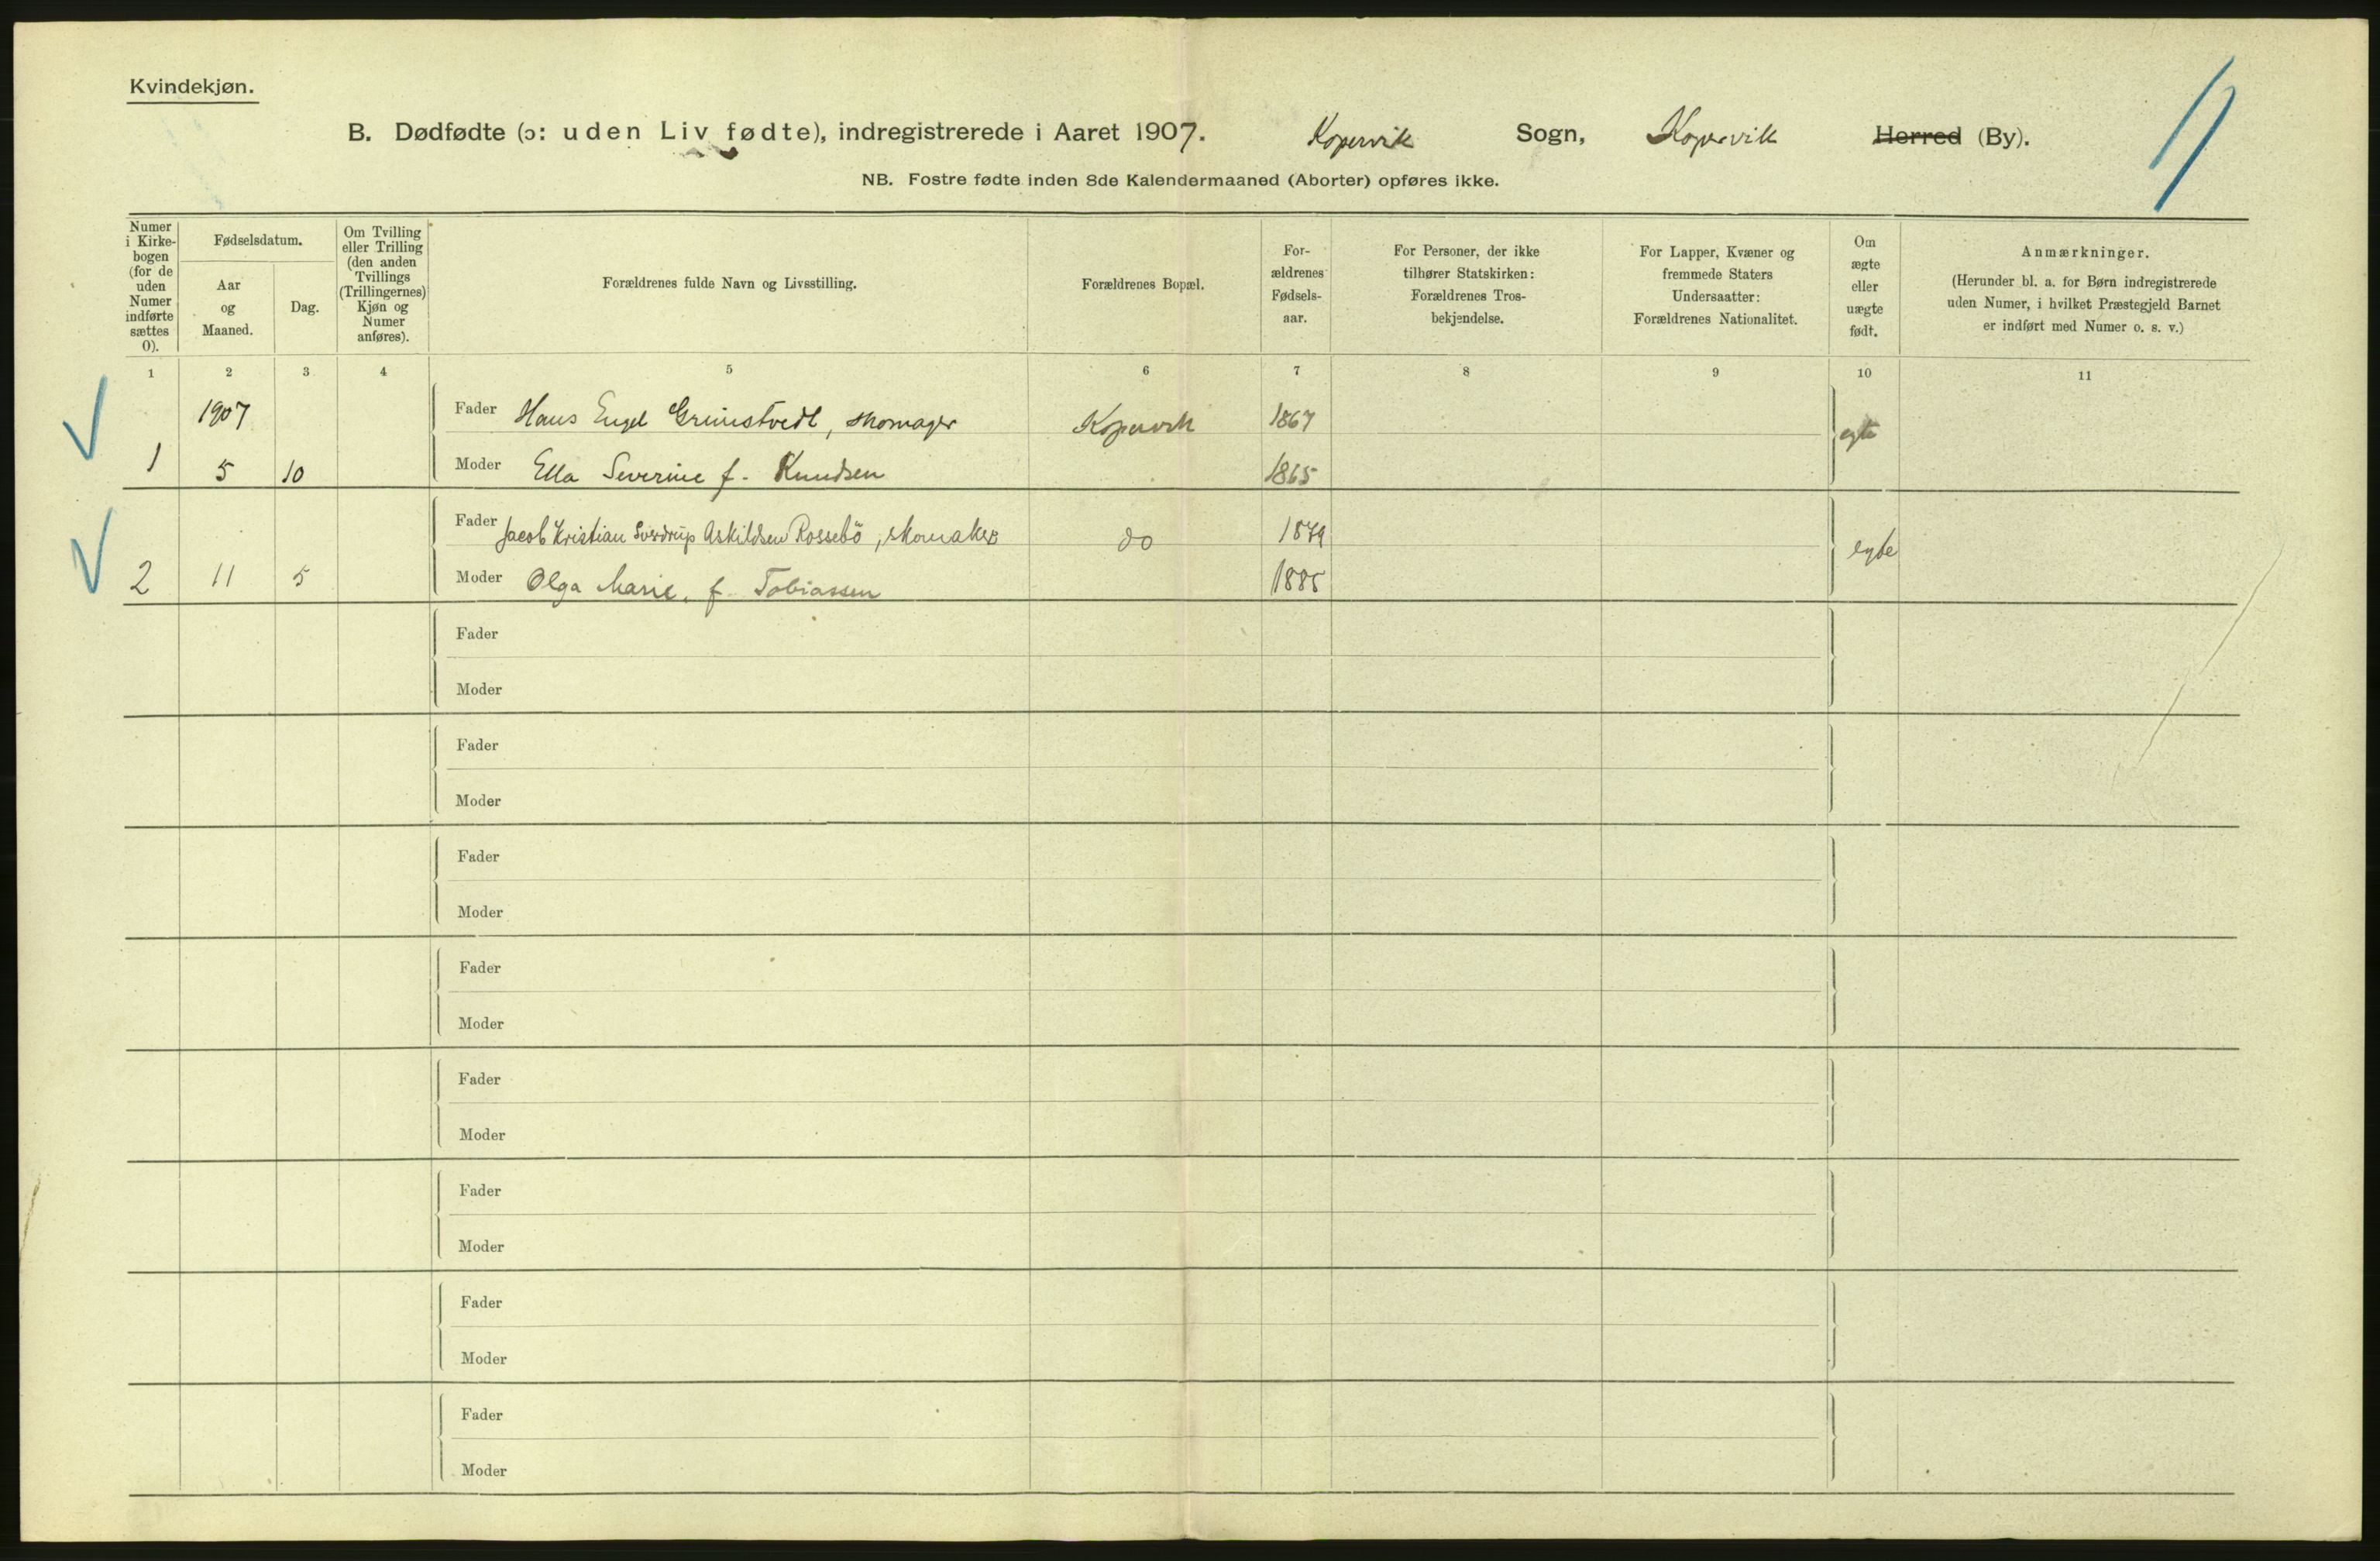 Kvindekjøn.
B. Dødfødte (ɔ: uden Liv fødte), indregistrerede i Aaret 1907. Kopervik Sogn, Kopervik Herred (By).
NB. Fostre fødte inden 8de Kalendermaaned (Aborter) opføres ikke.
Numer
i Kirke-
bogen
(for de
uden
Numer
indførte
sættes
0).
Fødselsdatum.
Aar
og
Maaned.
Dag.
Om Tvilling
eller Trilling
(den anden
Tvillings
(Trillingernes)
Kjøn og
Numer
anføres).
Forældrenes fulde Navn og Livsstilling.
Forældrenes Bopæl.
For-
ældrenes
Fødsels-
aar.
For Personer, der ikke
tilhører Statskirken:
Forældrenes Tros-
bekjendelse.
For Lapper, Kvæner og
fremmede Staters
Undersaatter:
Forældrenes Nationalitet.
Om
ægte
eller
uægte
født.
Anmærkninger.
(Herunder bl. a. for Børn indregistrerede
uden Numer, i hvilket Præstegjeld Barnet
er indført med Numer o. s. v.)
1 2 3 4 5 6 7 8 9 10 11
1907 Fader Hans Engel Grimstvedt, skomager Kopervik 1867 egte
1 5 10 Moder Ella Severine f. Knudsen 1865
Fader Jacob Kristian Sverdrup Askildsen Rossebö, skomaker do 1879 egte
2 11 5 Moder Olga Marie, f. Tobiassen 1885
Fader
Moder
Fader
Moder
Fader
Moder
Fader
Moder
Fader
Moder
Fader
Moder
Fader
Moder
Fader
Moder